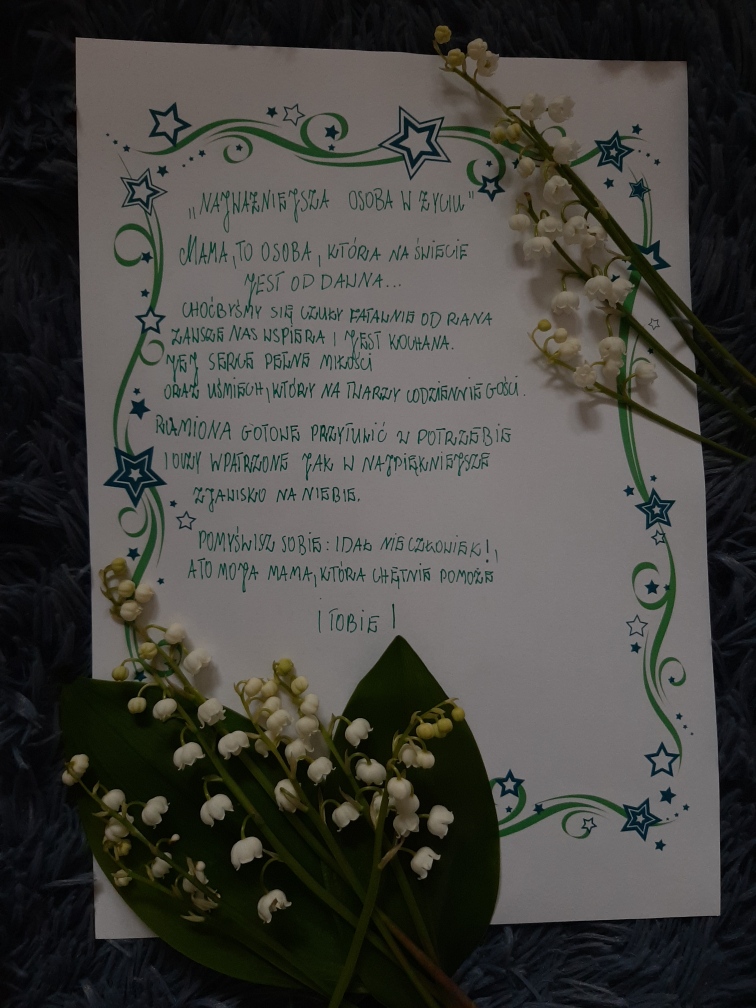 „NAJWAŻNIEJSZA OSOBA W ŻYCIU"
MAMA, TO OSOBA, KTÓRA NA ŚWIECIE
JEST OD DAWNA...
CHOĆBYŚMY SIĘ CZULI FATALNIE OD RANA
ZAWSZE NAS WSPIERA I JEST KOCHANA.
JEJ SERCE PEŁNE MIŁOŚCI
ORAZ UŚMIECH, KTÓRY NA TWARZY CODZIENNIE GOŚCI.
RAMIONA GOTOWE PRZYTULIĆ W POTRZEBIE
I OCZY WPATRZONE JAK W NAJPIĘKNIEJSZE
ZJAWISKO NA NIEBIE.
POMYŚLISZ SOBIE: IDAŁ NIE CZŁOWIEK!,
A TO MOJA MAMA, KTÓRA CHĘTNIE POMOŻE
I TOBIE!